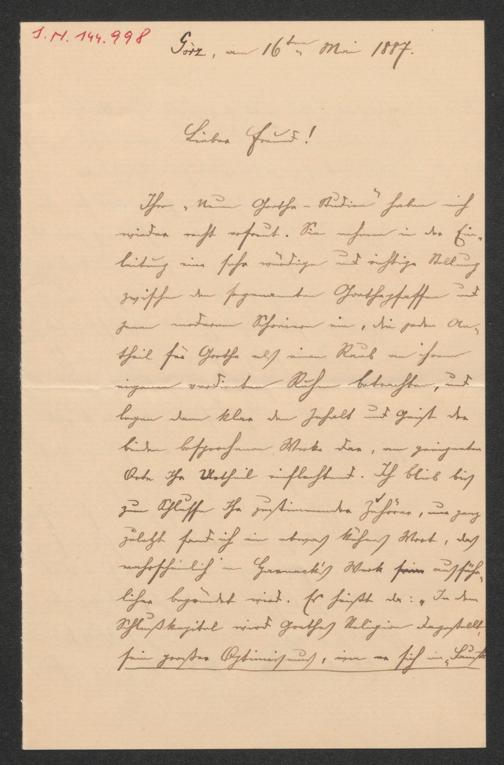 I.N. 144.998
Görz, am 16ten Mai 1887.
Lieber Freund!
Ihre „Neue Goethe-Studien" haben mich
wieder recht erfreut. Sie nehmen in der Ein-
leitung eine sehr würdige und richtige Stellung
zwischen den sogenannten Goethepfaffen und
jenen modernen Schreiern ein, die jeden An-
theil für Goethe als einen Raub an ihrem
eigenen verdienten Ruhm betrachten, und
legen dann klar den Inhalt und Geist der
beiden besprochenen Werke dar, am geeigneten
Orte Ihr Urtheil einflechtend. Ich blieb bis
zum Schlusse Ihr zustimmender Zuhörer, nur ganz
zuletzt fand ich ein etwas kühnes Wort, das
wahrscheinlich in Harnack's Werk ausführ-
licher begründet wird. Es heißt da: „In dem
Schlußkapitel wird Goethes Religion dargestellt,
sein großer Optimismus, wie er sich im „Faust